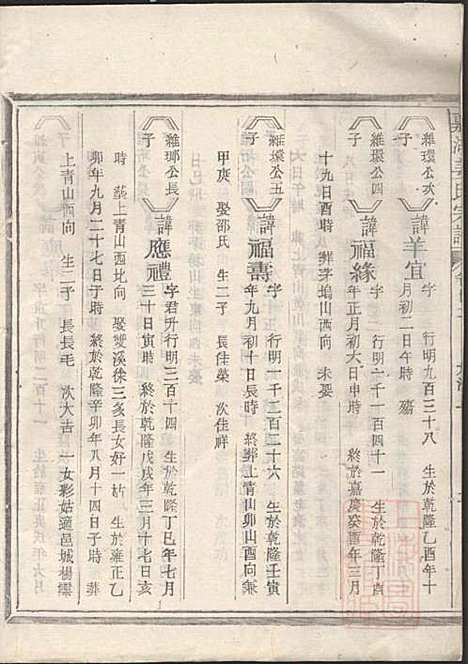 維環公次子
諱羊宜 字 行明九百三十八 生於乾隆乙酉年十
月初二日午時 殤
維環公四子
諱福緣 字 行明一千一百四十一 生於乾隆丁酉
年正月初六日申時 終於嘉慶癸酉年三月
十九日酉時 葬李塢山西向 未娶
維環公五子
諱福壽 字 行明一千二百二十六 生於乾隆壬寅
年九月初十日長時 終 葬上青山卯山酉向兼
甲庚 娶邵氏 生二子 長佳榮 次佳祥
維瑯公長子
諱應禮 字君升行明三百十四 生於乾隆丁巳年七月
三十日寅時 終於乾隆戊戌年三月十七日亥
時 葬上青山西北向 娶雙溪徐三多長女好一娘 生於雍正乙
卯年九月二十七日子時 終於乾隆辛卯年八月十四日子時 葬
上青山西向 生二子 長長毛 次大吉 一女彩姑適邑城楊